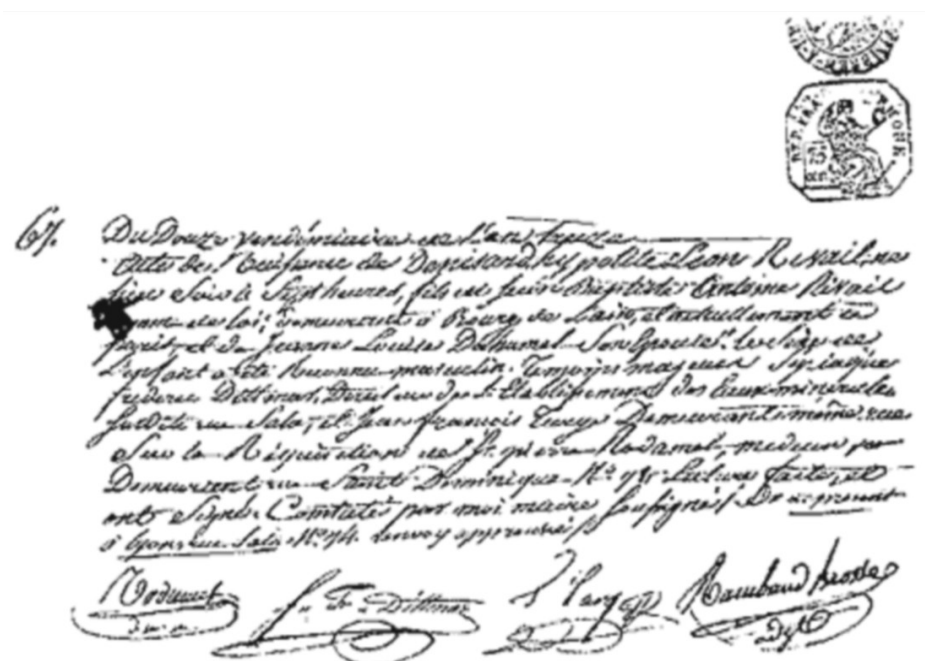 67.
Du Douze vendémiaire de l'an treize
Acte de Naissance de Denisard hypolite Leon Rivail, né
hier Soir à Sept heures, fils de Jean Baptiste Antoine Rivail
homme de loi, demeurant à Bourg de Lain, actuellement à
paris et de Jeanne Louise Duhamel Son Epouse. le Sexe de
L'enfant a été Reconnu masculin. Temoins majeurs Syriaque
frederic Dittmar, Directeur de l'Etablissement des Eaux minérales
Susdite rue Sala, et Jean françois Targe Demeurant même rue
Sur la Réquisition de Sr. pierre Radamel, medecin
Demeurant rue Saint Dominique No. 78. Lecture faite, et
ont Signé. Constaté par moi maire Soussigné
à Lyon rue Sala No. 74. renvoy approuvé
Radamel
Dittmar
Targe
Rambaud